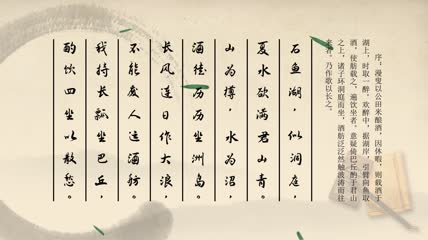 序：漫叟以公田米酿酒，因休暇，则载酒于
湖上，时取一醉，欢醉中，据湖岸，引臂向鱼取
酒，使舫载之，遍饮坐者，意疑倚巴丘酌于君山
之上，诸子环洞庭而坐，酒舫泛泛然触波涛而往
来者，乃作歌以长之。
石鱼湖，似洞庭，
夏水欲满君山青。
山为樽，水为沼，
酒徒历历坐洲岛。
长风连日作大浪，
不能废人运酒舫。
我持长瓢坐巴丘，
酌饮四坐以散愁。